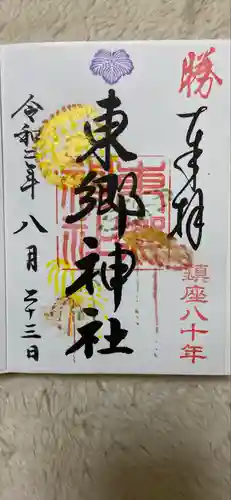 勝
奉拝
鎮座八十年
東郷神社
東郷神社
令和二年
八月
二十三日